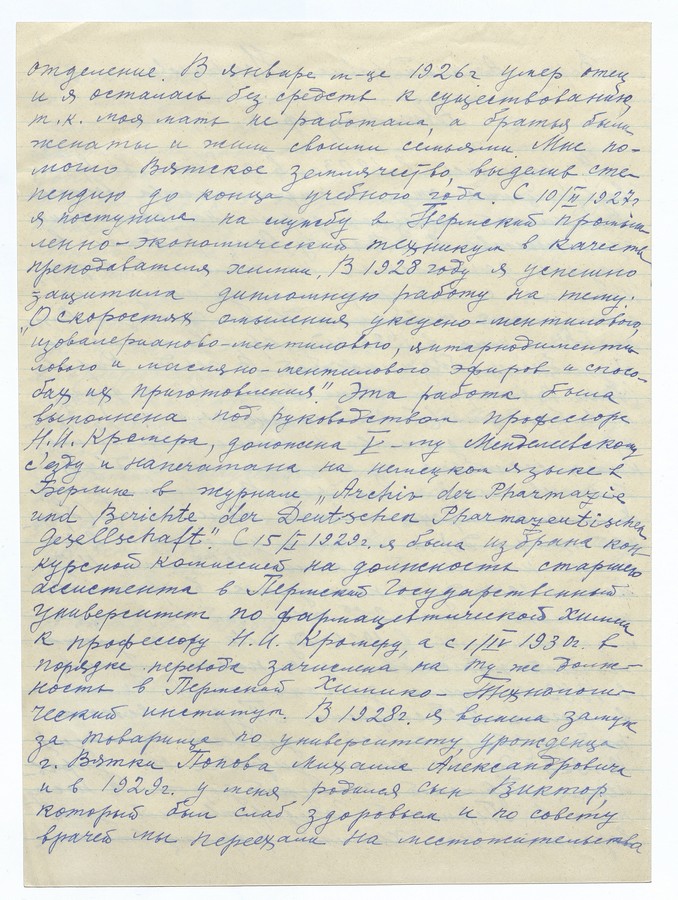 отделение. В январе м-це 1926г умер отец
и я осталась без средств к существованию,
т.к. моя мать не работала, а братья были
женаты и жили своими семьями. Мне по-
могло Вятское землячество, выделив сти-
пендию до конца учебного года. С 10/II 1927г
я поступила на службу в Пермский промыш
ленно-экономический техникум в качестве
преподавателя химии. В 1928 году я успешно
защитила дипломную работу на тему:
„О скоростях омыления уксусно-ментилового,
изовалерианово-ментилового, янтарнодименти-
лового и масляно-ментилового эфиров и спосо-
бах их приготовления". Эта работа была
выполнена под руководством профессора
Н.И. Кромера, доложена V-му Менделевскому
с'езду и напечатана на немецком языке в
Берлине в журнале „Archiv der Pharmazie
und Berichte der Deutschen Pharmazeutischen
Gesellschaft". С 15/I 1929г. я была избрана кон-
курсной комиссией на должность старшего
ассистента в Пермский Государственный
университет по фармацевтической химии
к профессору Н.И. Кромеру, а с 1/IV 1930г. в
порядке перевода зачислена на ту же долж-
ность в Пермский Химико-Технологи-
ческий институт. В 1928г. я вышла замуж
за товарища по университету, урожденца
г. Вятки Попова Михаила Александровича
и в 1929г. у меня родился сын Виктор,
который был слаб здоровьем и по совету
врачей мы переехали на местожительства